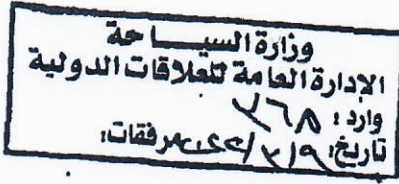 وزارة السيـــاحة
الإدارة العامة للعلاقات الدولية
وارد:
تاريخ: مرفقات: